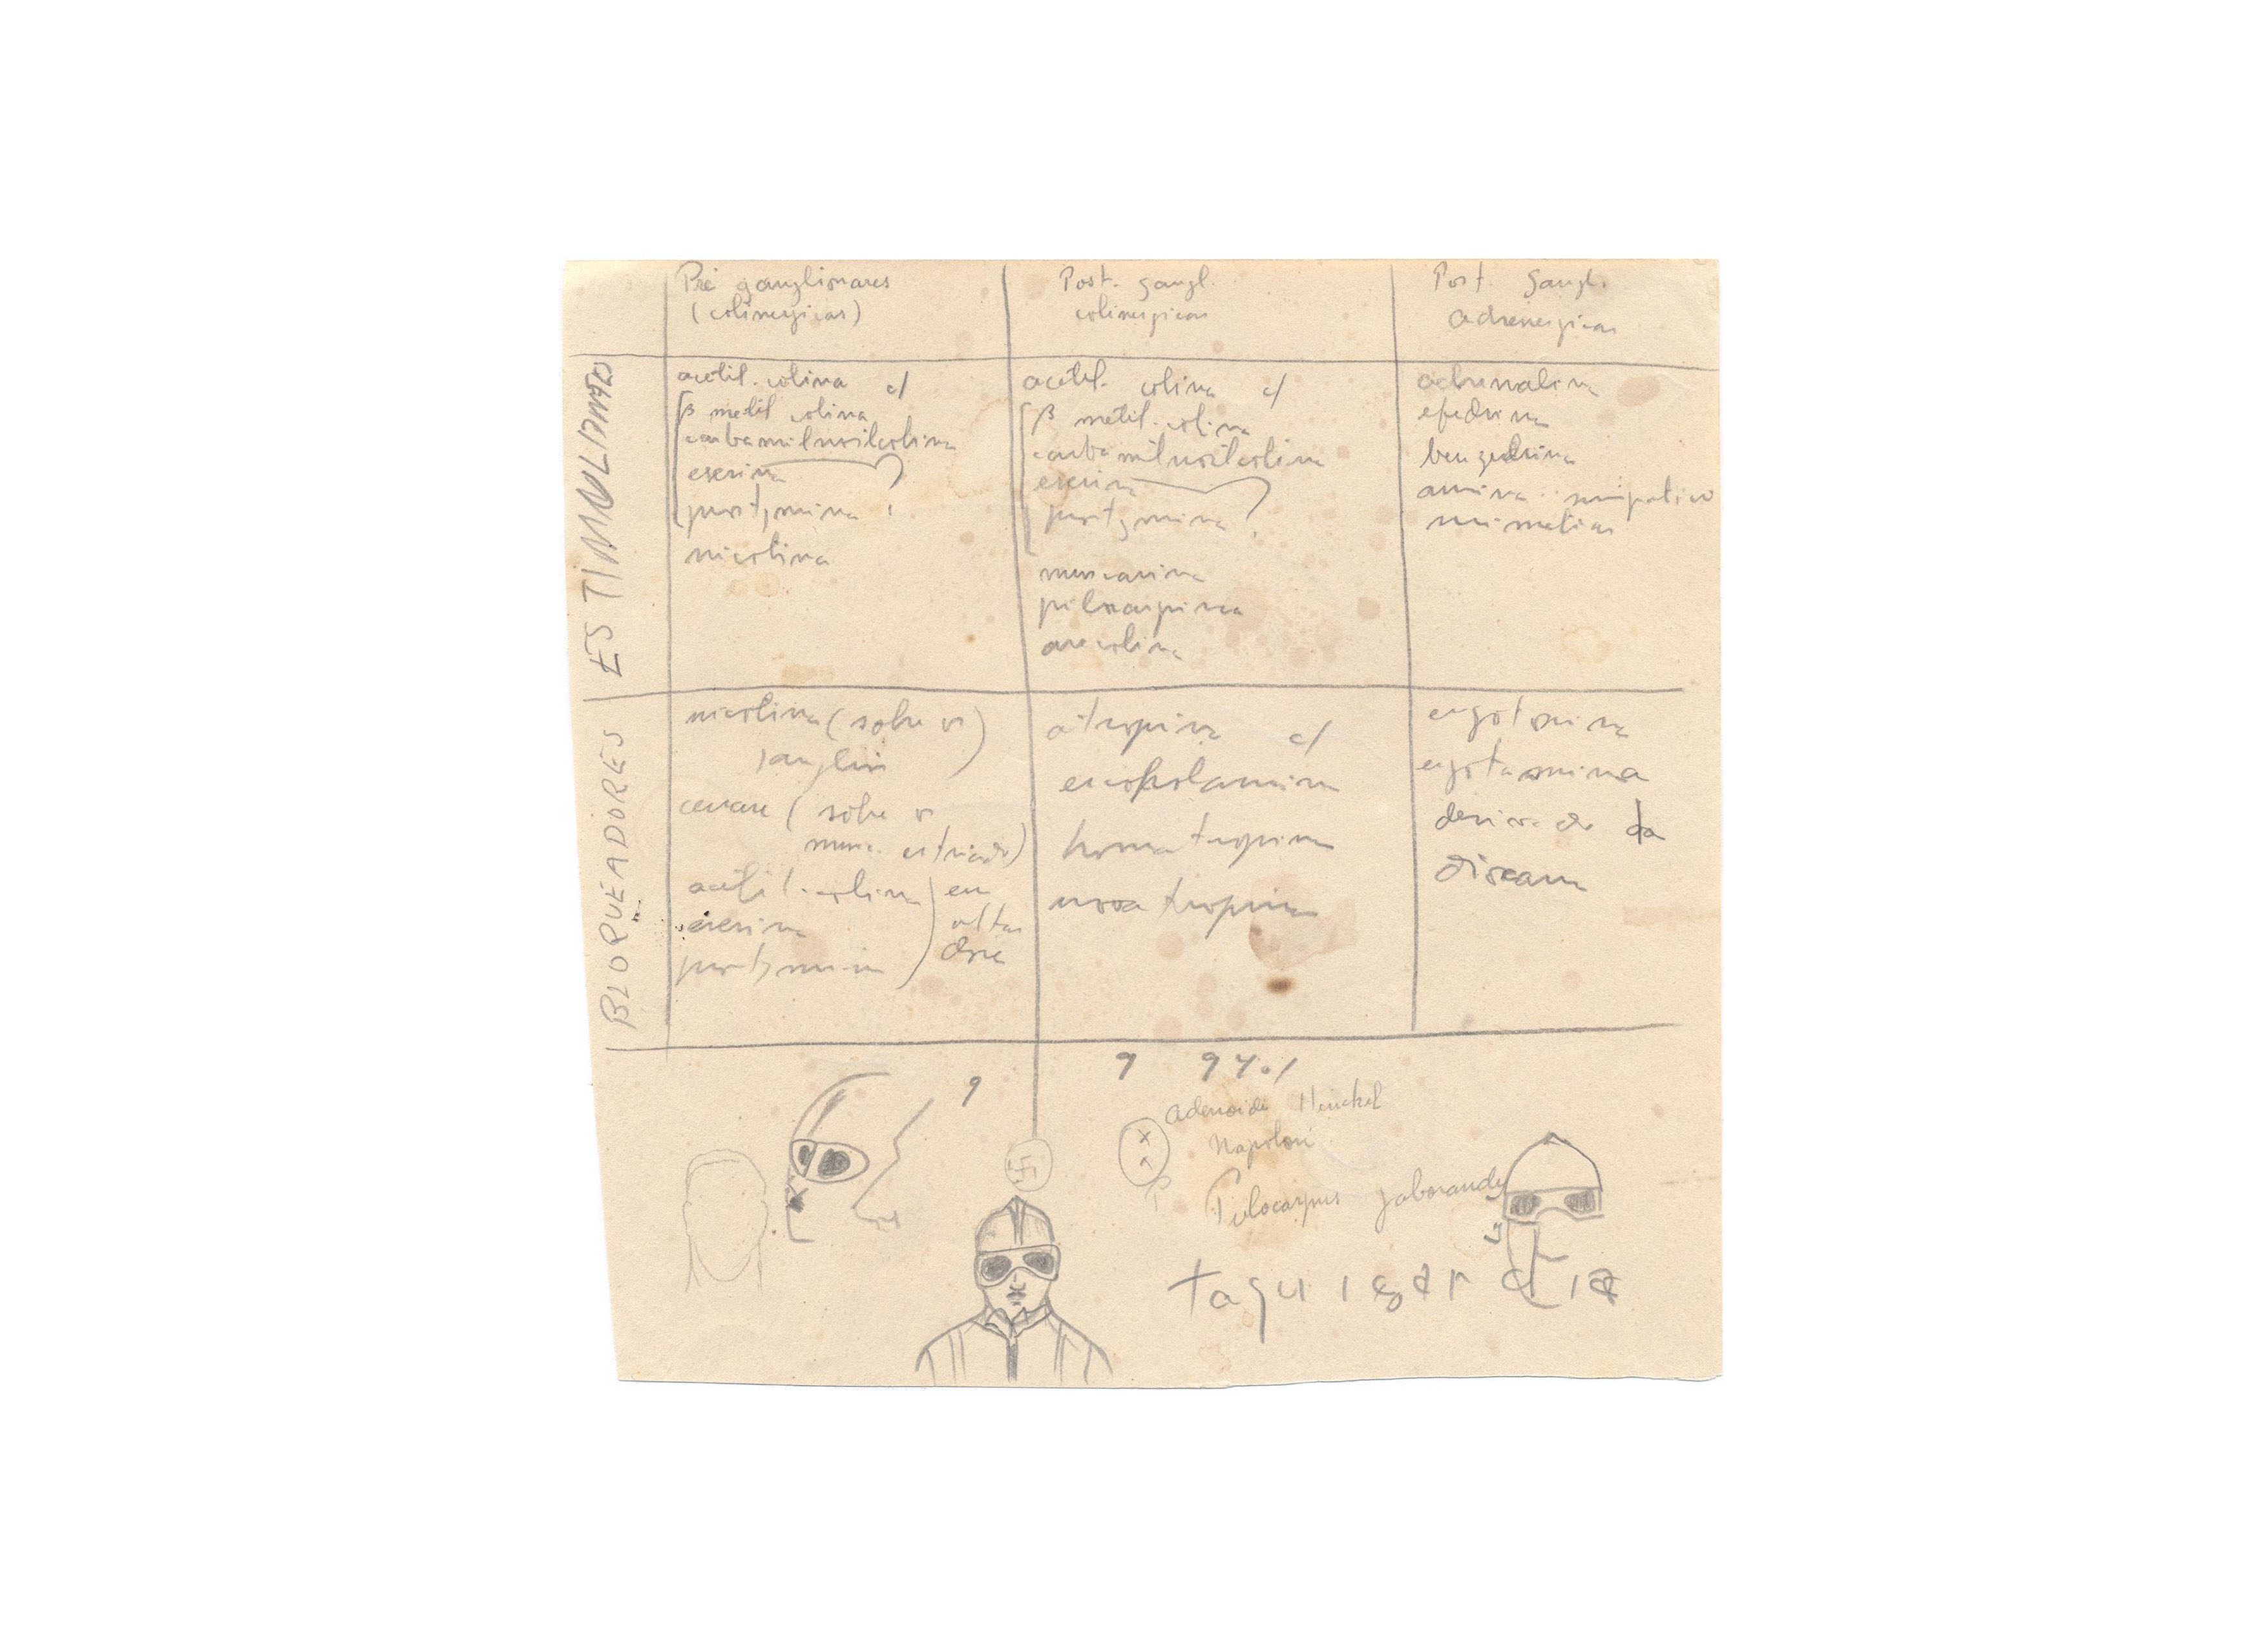 Pré ganglionares
(colinergicas)
Post. gangl.
colinergicas
Post. Gangl.
adrenergicas
ESTIMULANTES
acetil. colina c/
β metil colina
carbaminoilcolina
eserina
prostigmina ?
nicotina
acetil. colina c/
β metil. colina
carbaminoilcolina
eserina
prostigmina ?
muscarina
pilocarpina
arecolina
adrenalina
efedrina
benzedrina
amina simpatico
mimeticas
BLOQUEADORES
nicotina (sobre os
ganglios)
curare (sobre os
musc. estriados)
acetil. colina
eserina
prostigmina
em
altas
dose
atropina c/
escopolamina
homatropina
novatropina
ergotoxina
ergotamina
derivado da
dioxana
9 9 9%
Adenoide Henckel
Napoloni
Pilocarpus jaborandy
taquicardia